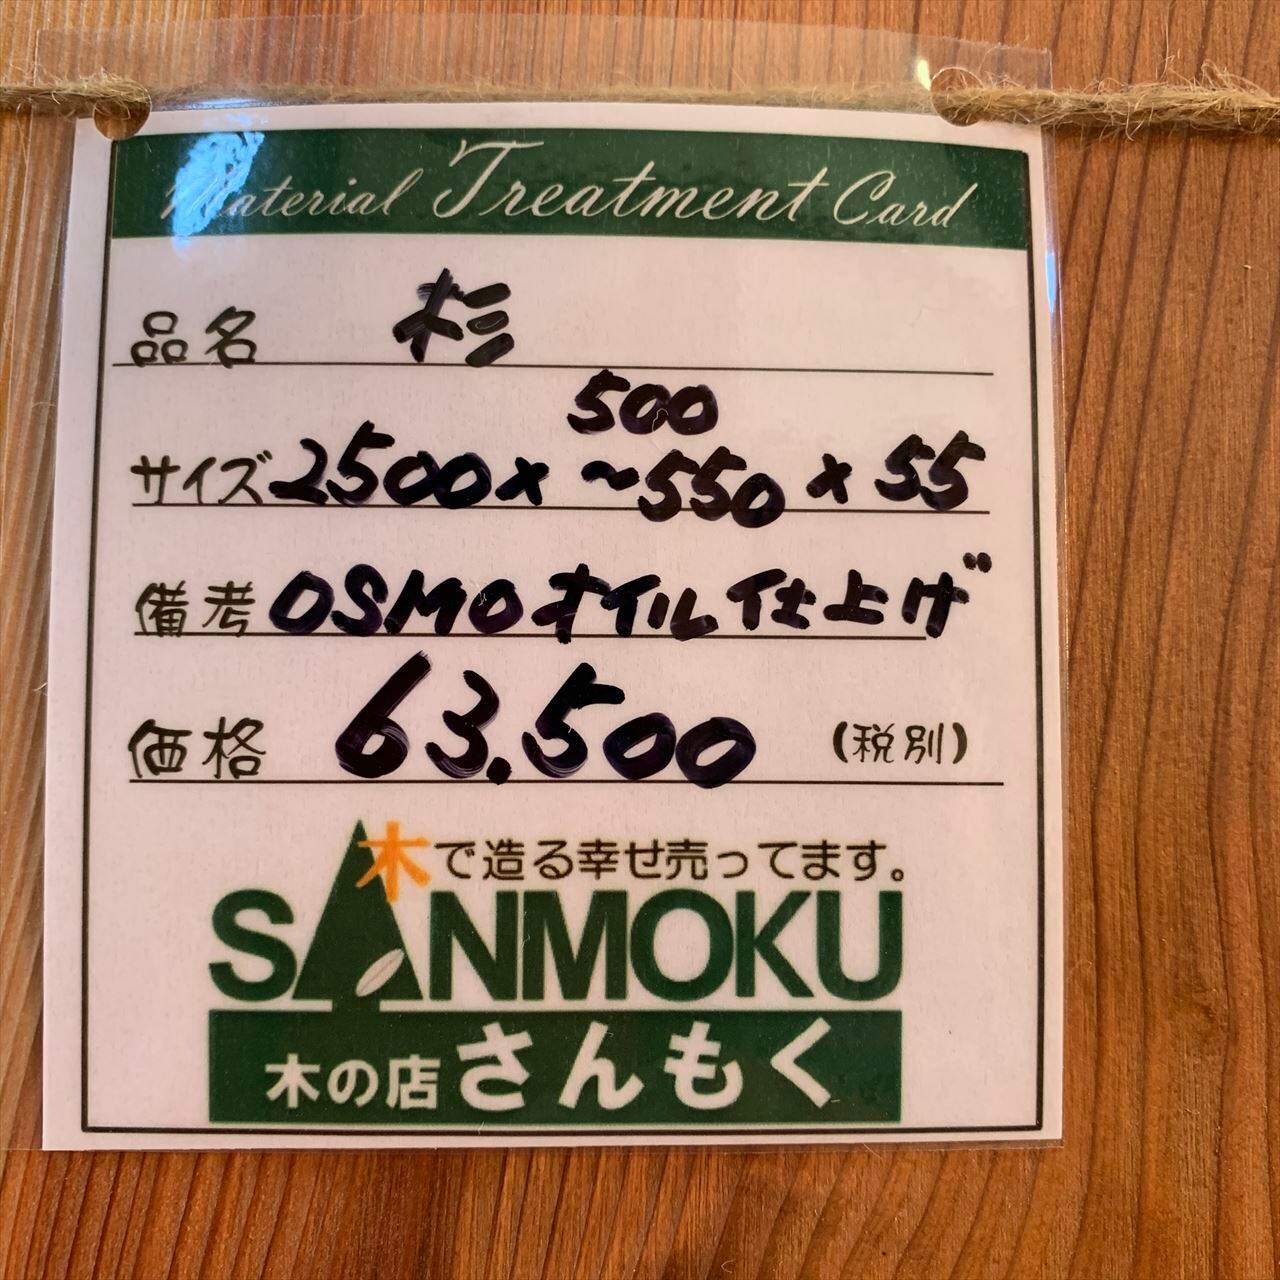 Material Treatment Card
品名 杉
500
サイズ 2500× ~550 × 55
備考 OSMOオイル仕上げ
価格 63.500 (税別)
木で造る幸せ売ってます。
SANMOKU
木の店 さんもく